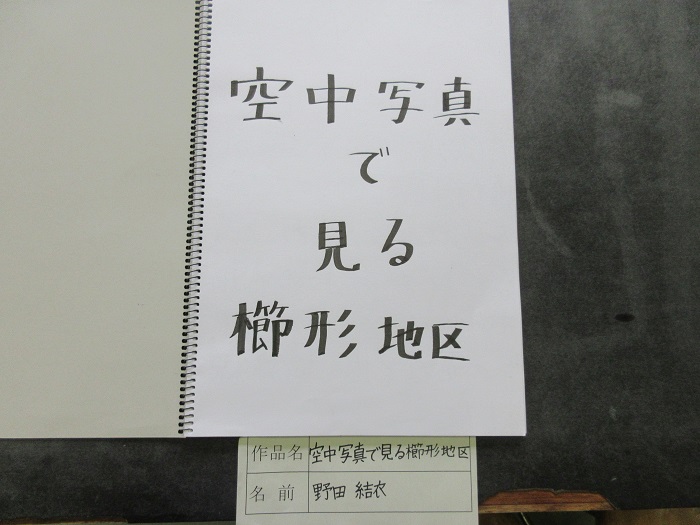 空中写真
で
見る
櫛形地区
作品名 空中写真で見る櫛形地区
名前 野田 結衣